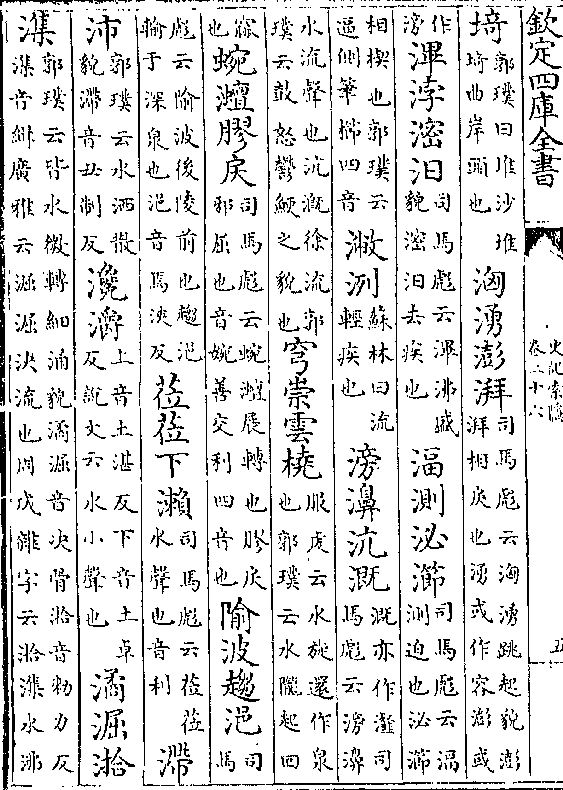 欽定四庫全書
史記索隱
卷二十六
五
埼郭璞曰堆沙堆埼曲岸頭也洶湧澎湃司馬彪云洶湧跳起貌澎湃相戾也湧或作容澎或
作滂滭浡滵汨司馬彪云滭沸盛貌滵汨去疾也湢測泌㴉司馬彪云湢測迫也泌㴉
相楔也郭璞云逼側筆櫛四音潎洌蘇林曰流輕疾也滂濞沆溉溉亦作瀣司馬彪云滂濞
水流聲也沆溉徐流郭璞云鼓怒鬱鯁之貌也穹崇雲橈服虔云水旋還作泉也郭璞云水隴起回
窳也蜿灗膠戾司馬彪云蜿灗展轉也膠戾邪屈也音婉善交利四音也隃波趨浥司馬
彪云隃波後陵前也趨浥輸于深泉也浥音焉浹反莅莅下瀨司馬彪云莅莅水聲也音利滯
沛郭璞云水洒散貌滯音丑制反瀺灂上音士湛反下音士卓反說文云水小聲也潏淈湁
潗郭璞云皆水微轉細涌貌潏淈音决骨湁音勑力反潗音緝廣雅云淈淈决流也周成雜字云湁潗水沸